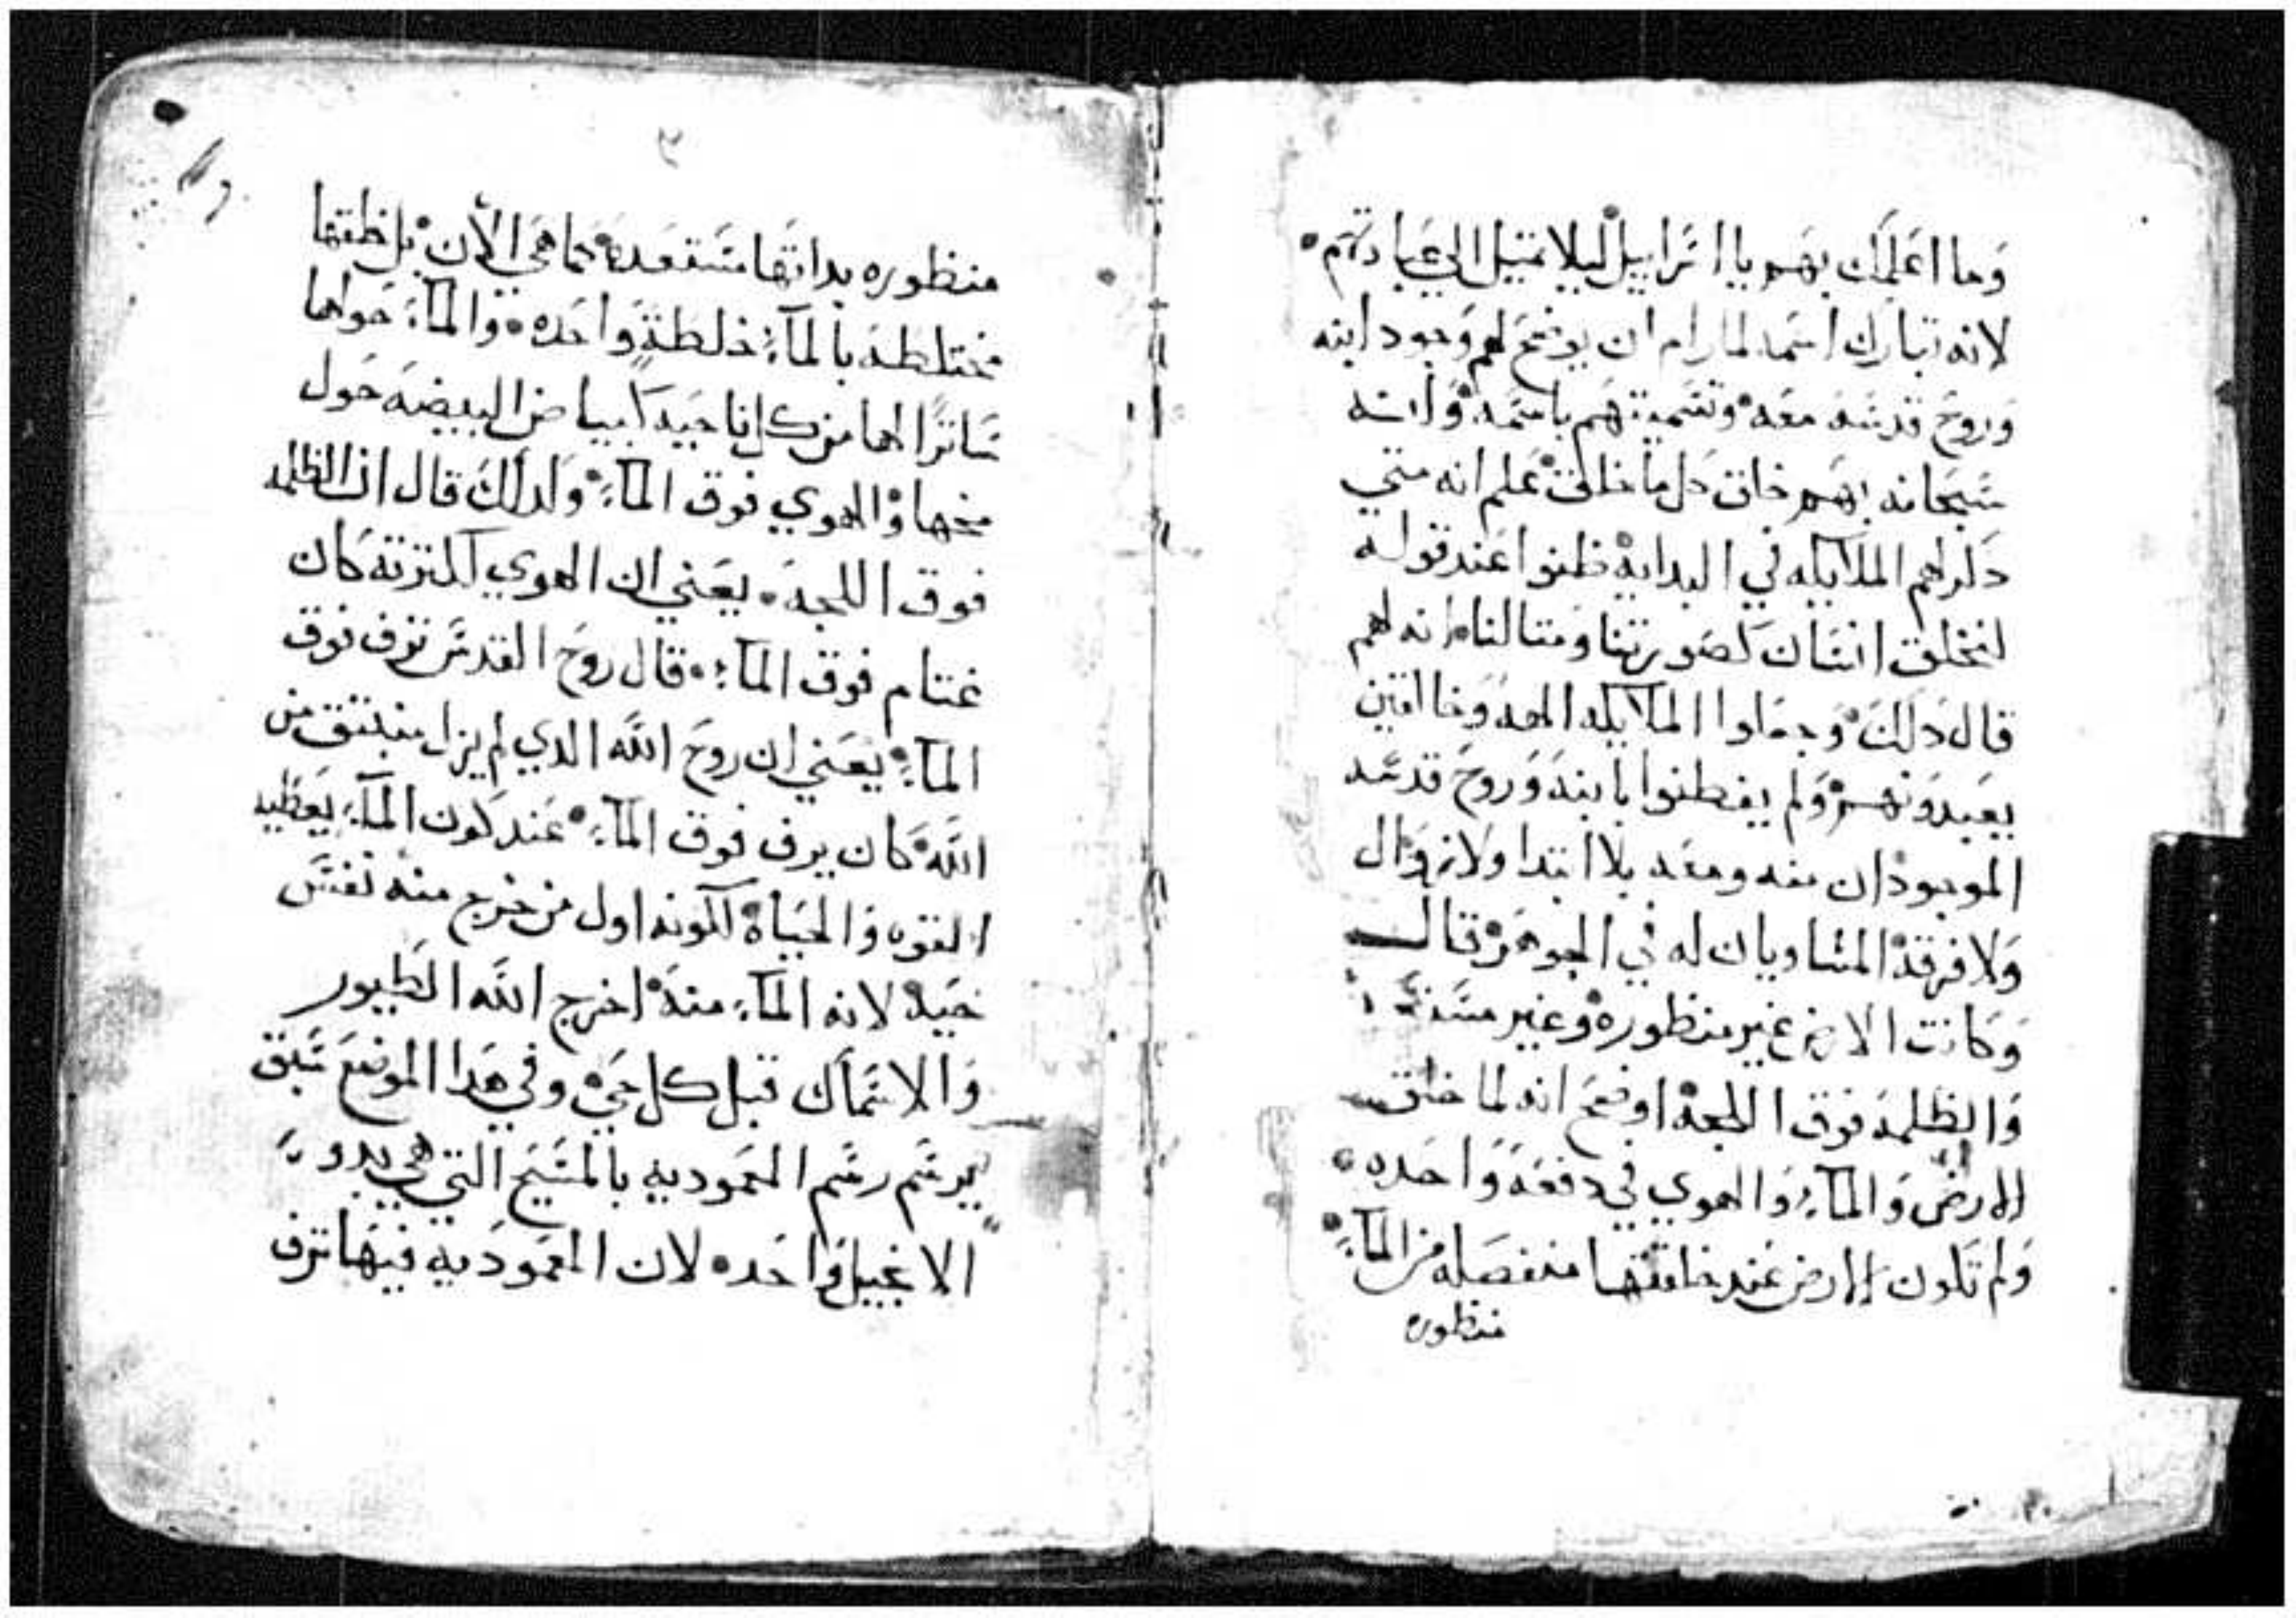 وما اعلمك بهم يا اسراييل ليلا تميل الي عبادتهم
لانه تبارك اسمه لما رام ان يوضح لهم وجود ابنه
وروح قدسه معه وتسميتهم باسمه وانه
سبحانه بهم خلق كل ما خلق علم انه متي
دكر لهم الملايكه في البدايه ظنوا عند قوله
لنخلق انسان كصورتنا ومتالنا انه لهم
قال دلك وجعلوا الملايكه الهه وخالقين
يعبدونهم ولم يفطنوا بابنه وروح قدسه
الموجودان منه ومعه بلا ابتدا ولا زوال
ولا فرقه المساويان له في الجوهر قال
وكانت الارض غير منظوره وغير
والظلمه فوق اللجه اوضح انه لما خلق
الارض والمآء والهوي في دفعه واحده
ولم تكون الارض عند خلقتها منفصله من المآء
منظوره
٣
منظوره بداتها مستعده كما هي الآن بل خلقتها
مختلطه بالمآء خلطة واحده والمآء حواها
ساترا لها من كل ناحيه كبياض البيضه حول
مخها والهوي فوق المآء ولدلك قال ان الظلمه
فوق اللجه يعني ان الهوي لكترته كان
غتام فوق المآء قال روح القدس ترف فوق
المآء يعني ان روح الله الدي لم يزل منبتق من
الله كان يرف فوق المآء عند كون المآء يعطيه
القوه والحياه لكونه اول من خرج منه نفس
حيه لانه المآء منه اخرج الله الطيور
والاسماك قبل كل حي وفي هدا الموضع سبق
يرسم رسم المعموديه بالمسيح التي هي
الانجيل واحده لان المعموديه فيها ترف